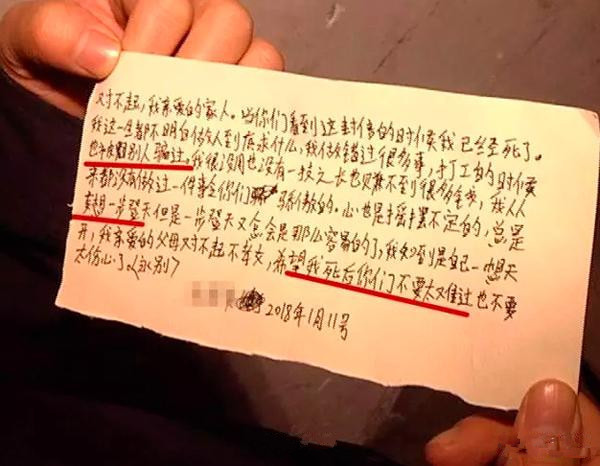 对不起，我亲爱的家人。当你们看到这封信的时候我已经死了。
我这一生都不明白做人到底求什么，我做错过很多事，打工的时候
也被别人骗过。我很没用也没有一技之长也赚不到很多金钱，我从
来都没有做过一件事令你们骄傲的。心也是摇摆不定的，总是
想一步登天但是一步登天又怎会是那么容易的了，我知到是自己一想天
开，我亲爱的父母对不起不孝女，希望我死后你们不要太难过也不要
太伤心了。(永别)
2018年1月11号